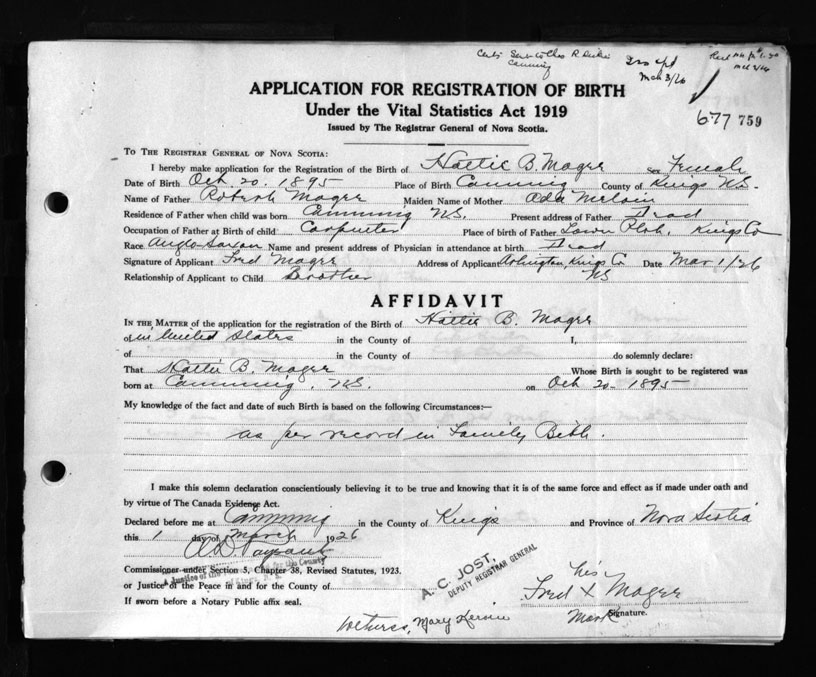 Canning
2nd cpt
Mch 3/26
APPLICATION FOR REGISTRATION OF BIRTH
Under the Vital Statistics Act 1919
Issued by The Registrar General of Nova Scotia.
677 759
TO THE REGISTRAR GENERAL OF NOVA SCOTIA:
I hereby make application for the Registration of the Birth of Hattie B. Magee sex Female
Date of Birth Oct. 20. 1895 Place of Birth Canning County of Kings NS.
Name of Father Robert Magee Maiden Name of Mother Ada
Residence of Father when child was born Canning NS. Present address of Father Dead
Occupation of Father at Birth of child Carpenter Place of birth of Father Town Plot, Kings Co
Race Anglo Saxon Name and present address of Physician in attendance at birth Dead
Signature of Applicant Fred Magee Address of Applicant Arlington, Kings Co Date Mar 1/26
Relationship of Applicant to Child Brother NS
AFFIDAVIT
IN THE MATTER of the application for the registration of the Birth of Hattie B. Magee
of in United States in the County of I,
of in the County of do solemnly declare:
That Hattie B. Magee Whose Birth is sought to be registered was
born at Canning, NS. on Oct 20. 1895
My knowledge of the fact and date of such Birth is based on the following Circumstances:—
as per record in Family Bible.
I make this solemn declaration conscientiously believing it to be true and knowing that it is of the same force and effect as if made under oath and
by virtue of The Canada Evidence Act.
Declared before me at Canning in the County of Kings and Province of Nova Scotia
this 1 day of March 1926
Commissioner under Section 5, Chapter 38, Revised Statutes, 1923.
A Justice of the for this County
or Justice of the Peace in and for the County of
A. C. JOST,
DEPUTY REGISTRAR GENERAL
If sworn before a Notary Public affix seal.
his
Fred X Magee
Mark Signature.
Witness, Mary